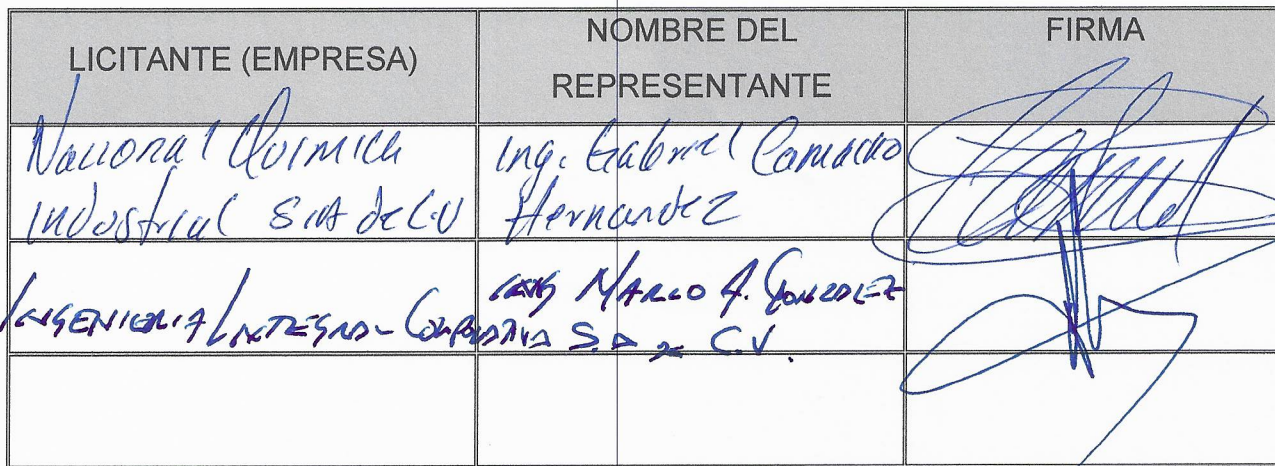 LICITANTE (EMPRESA)
NOMBRE DEL
REPRESENTANTE
FIRMA
Nacional Quimica
Industrial S.A de C.V
Ing. Gabriel Camacho
Hernandez
INGENIERIA INTEGRAL CORPORATIVA S.A DE C.V.
ING MARCO A. GONZALEZ